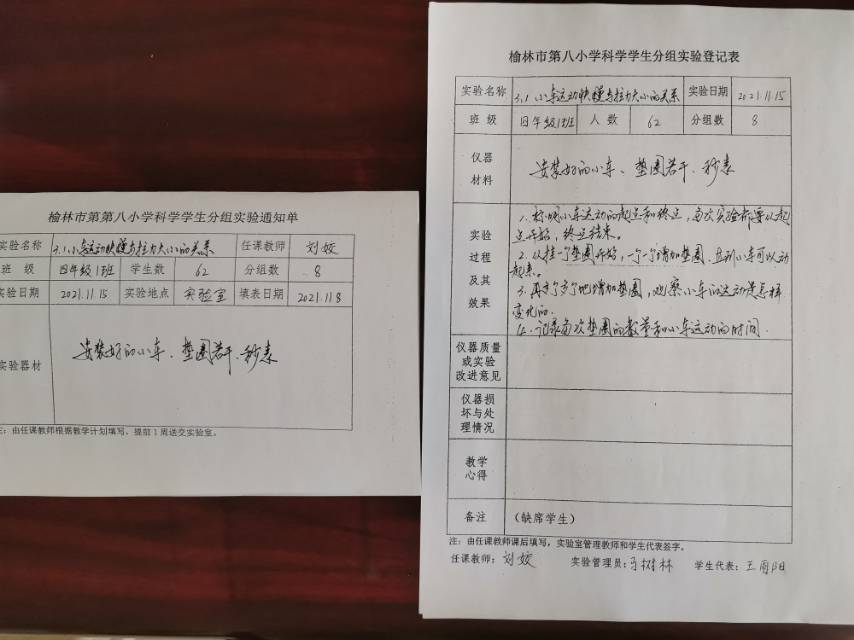 榆林市第第八小学科学学生分组实验通知单
实验名称 3.1小车运动快慢与拉力大小的关系 任课教师 刘姣
班 级 四年级13班 学生数 62 分组数 8
实验日期 2021.11.15 实验地点 实验室 填表日期 2021.11.8
实验器材 安装好的小车、垫圈若干、秒表
注:由任课教师根据教学计划填写,提前1周送交实验室。
榆林市第八小学科学学生分组实验登记表
实验名称 3.1 小车运动快慢与拉力大小的关系 实验日期 2021.11.15
班 级 四年级13班 人 数 62 分组数 8
仪器
材料
安装好的小车、垫圈若干、秒表
实验
过程
及其
效果
1.标明小车运动的起点和终点,每次实验都要从起
点开始,终点结束。
2.从挂一个垫圈开始,一个一个增加垫圈,直到小车可以动
起来。
3.再
地增加垫圈,观察小车的运动是怎样
变化的。
4.记录每次垫圈的数量和小车运动的时间.
仪器质量
或实验
改进意见
仪器损
坏与处
理情况
教学
心得
备注 (缺席学生)
注:由任课教师课后填写,实验室管理教师和学生代表签字。
任课教师:刘姣 实验管理员:马树林 学生代表:王雨阳